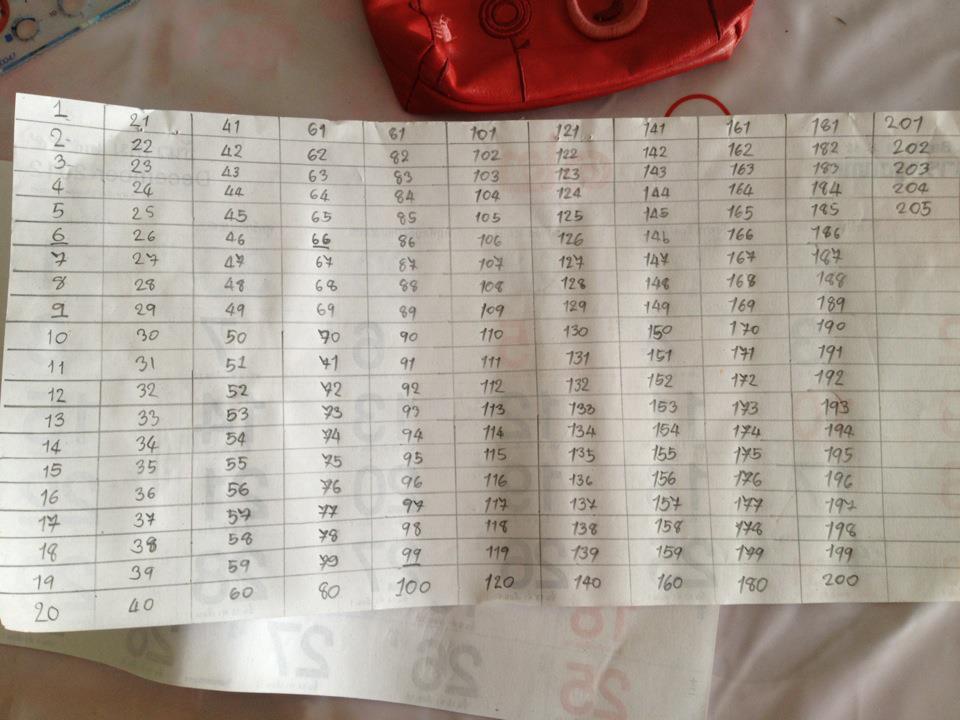 1 21 41 61 81 101 121 141 161 181 201
2 22 42 62 82 102 122 142 162 182 202
3 23 43 63 83 103 123 143 163 183 203
4 24 44 64 84 104 124 144 164 184 204
5 25 45 65 85 105 125 145 165 185 205
6 26 46 66 86 106 126 146 166 186
7 27 47 67 87 107 127 147 167 187
8 28 48 68 88 108 128 148 168 188
9 29 49 69 89 109 129 149 169 189
10 30 50 70 90 110 130 150 170 190
11 31 51 71 91 111 131 151 171 191
12 32 52 72 92 112 132 152 172 192
13 33 53 73 93 113 133 153 173 193
14 34 54 74 94 114 134 154 174 194
15 35 55 75 95 115 135 155 175 195
16 36 56 76 96 116 136 156 176 196
17 37 57 77 97 117 137 157 177 197
18 38 58 78 98 118 138 158 178 198
19 39 59 79 99 119 139 159 179 199
20 40 60 80 100 120 140 160 180 200